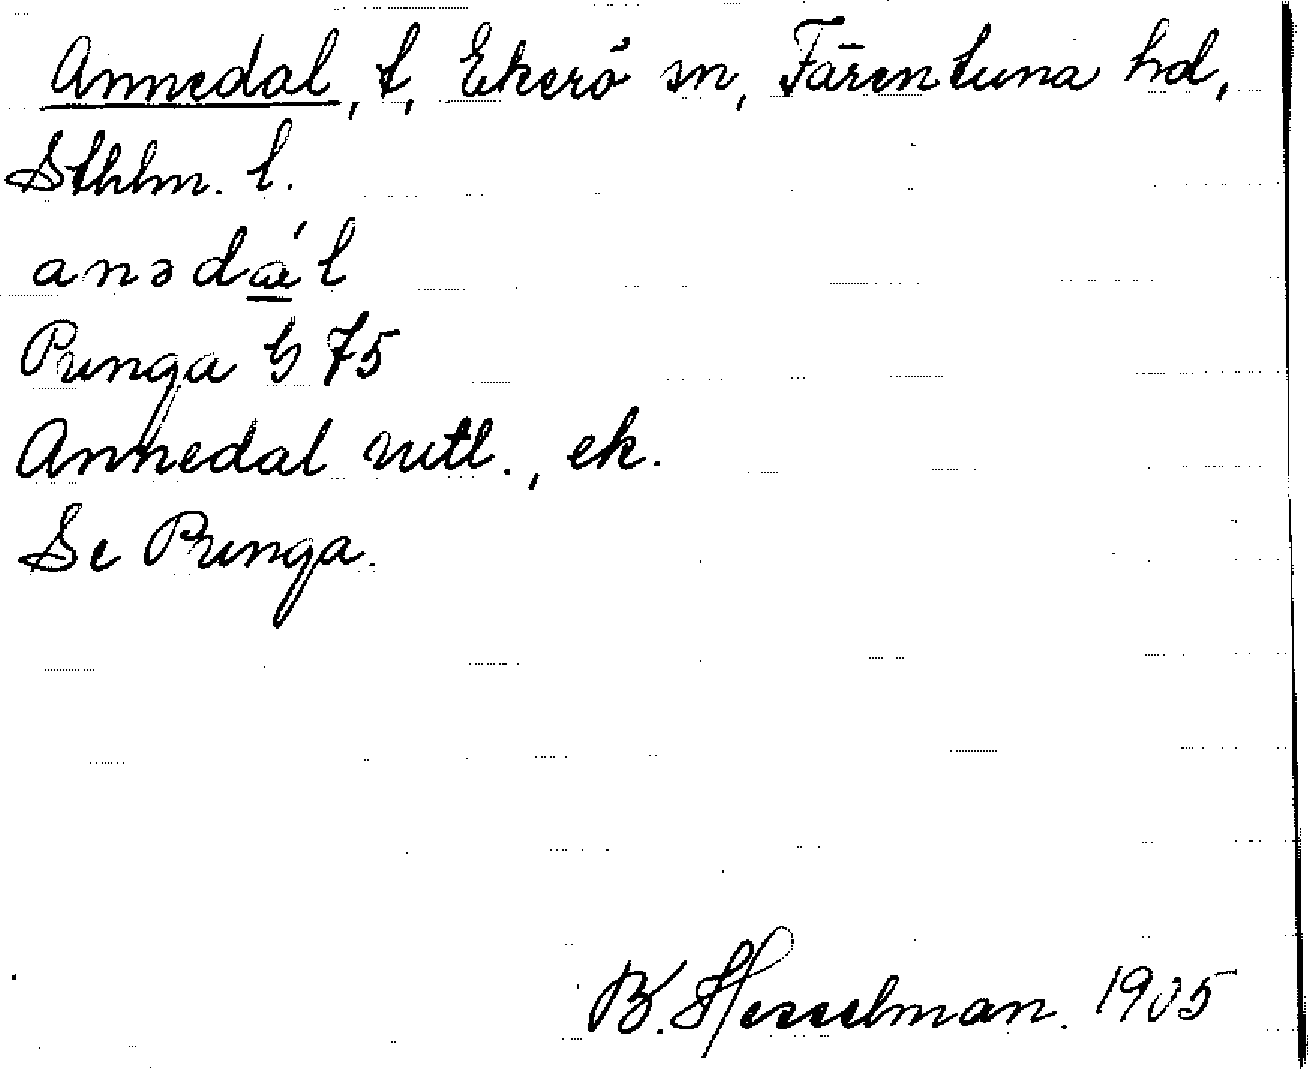 Annedal, t, Ekerö sn, Färentuna hd,
Sthlm. l.
anədál
Prunga G 75
Annedal mtl., ek.
Se Prunga.
B. Hesselman. 1905